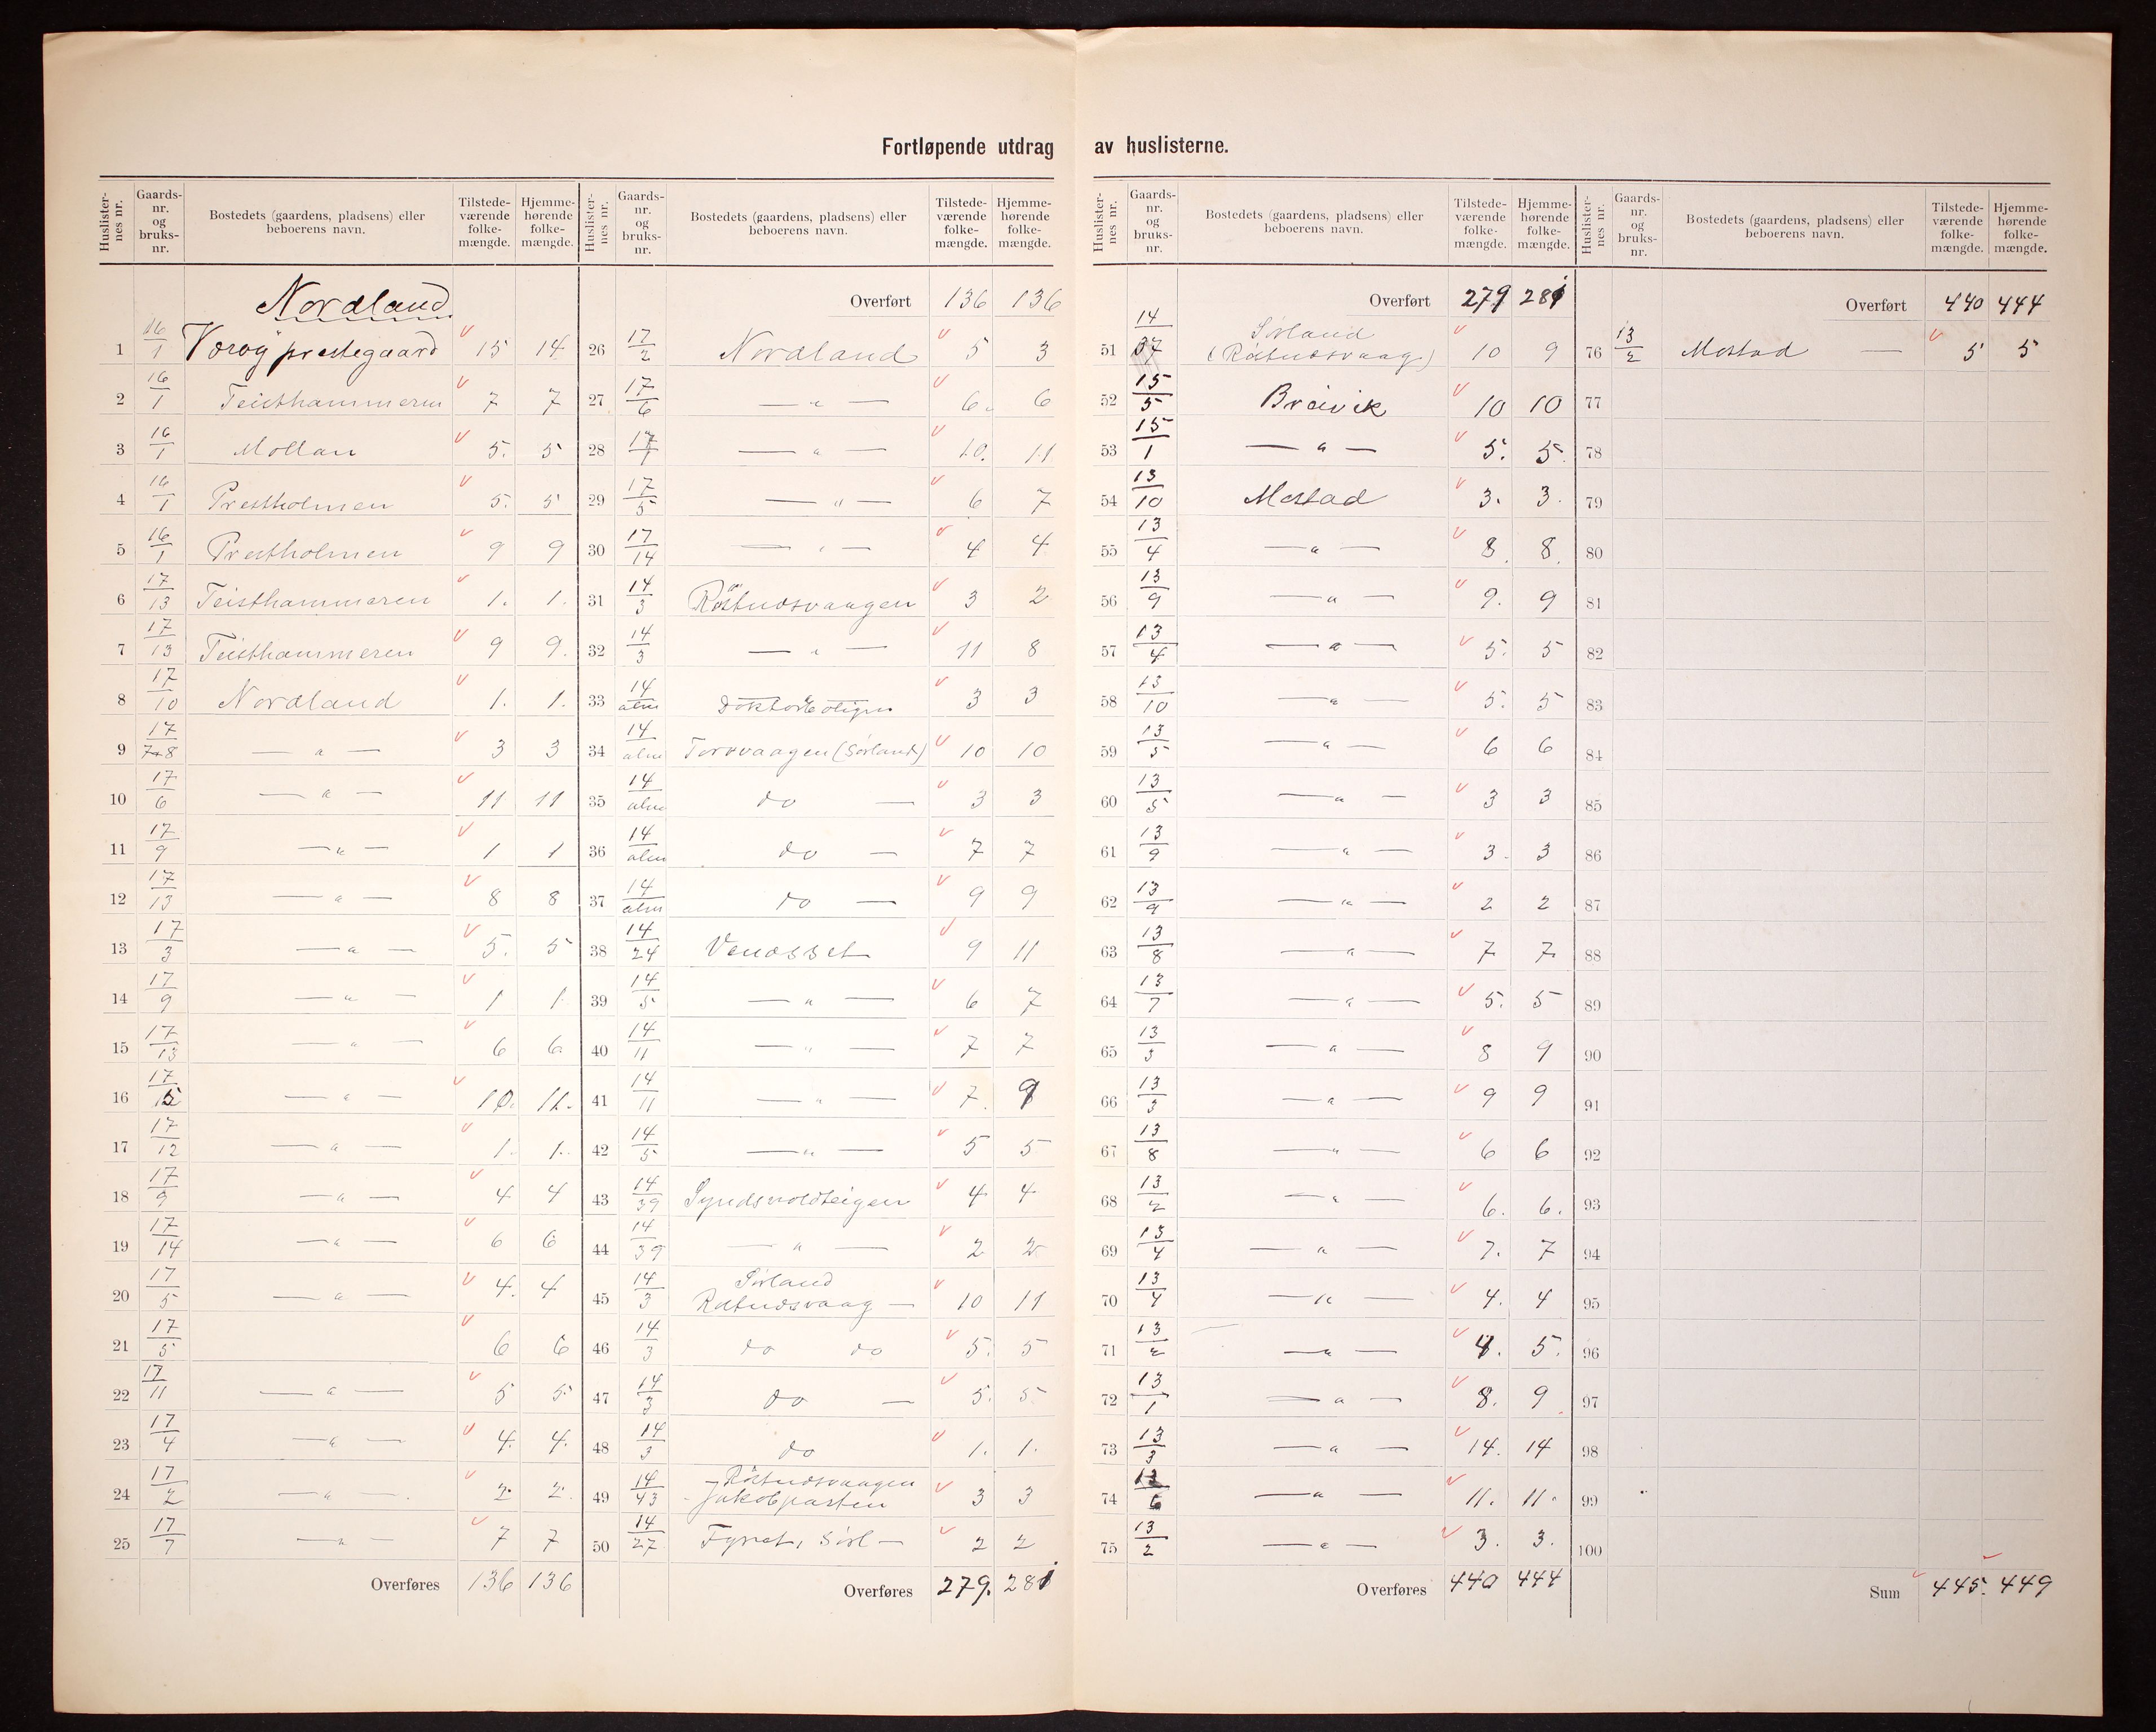 Fortløpende utdrag av huslisterne.
Huslisternes nr. Gaardsnr. og bruksnr. Bostedets (gaardens, pladsens) eller beboerens navn. Tilstedeværende folkemængde. Hjemmehørende folkemængde.
Nordland
1 16/1 Værøy prestegaard 15 14
2 16/1 Teisthammeren 7 7
3 16/1 Mollan 5. 5
4 16/1 Prestholmen 5. 5
5 16/1 Prestholmen 9 9
6 17/13 Teisthammeren 1. 1.
7 17/13 Teisthammeren 9 9.
8 17/10 Nordland 1. 1.
9 17/7+8 — " — 3 3
10 17/6 — " — 11 11
11 17/9 — " — 1 1
12 17/13 — " — 8 8
13 17/3 — " — 5. 5
14 17/9 — " — 1 1
15 17/13 — " — 6 6
16 17/ — " — 10. 11.
17 17/12 — " — 1. 1.
18 17/9 — " — 4 4
19 17/14 — " — 6 6
20 17/5 — " — 4. 4
21 17/5 6 6
22 17/11 — " — 5 5
23 17/4 — " — 4. 4.
24 17/2 — " — 2 2
25 17/7 — " — 7 7
Overføres 136 136
Huslisternes nr. Gaardsnr. og bruksnr. Bostedets (gaardens, pladsens) eller beboerens navn. Tilstedeværende folkemængde. Hjemmehørende folkemængde.
Overført 136 136
26 17/2 Nordland 5 3
27 17/6 — " — 6. 6
28 17/1 — " — 10. 11
29 17/5 — " — 6 7
30 17/14 — " — 4 4
31 14/3 Røstnesvaagen 3 2
32 14/3 — " — 11 8
33 14/alm 3 3
34 14/alm Tervvaagen (Sørland) 10 10
35 14/alm do — 3 3
36 14/alm do — 7 7
37 14/alm do — 9 9
38 14/24 9 11
39 14/5 — " — 6 7
40 14/11 — " — 7 7
41 14/11 — " — 7. 9
42 14/5 — " — 5 5
43 14/39 Syndsvoldteigen 4 4
44 14/39 — " — 2 2
Sørland
45 14/3 Røstnesvaag — 10 11
46 14/3 do do 5. 5
47 14/3 do — 5. 5
48 14/3 do 1. 1.
— Røstnesvaagen
49 14/43 - Jakobparten 3 3
50 14/27 Fyret, Sørl — 2 2
Overføres 279. 281
Huslisternes nr. Gaardsnr. og bruksnr. Bostedets (gaardens, pladsens) eller beboerens navn. Tilstedeværende folkemængde. Hjemmehørende folkemængde.
Overført 279 281
Sørland
51 14/37 (Røstnesvaag) 10 9
52 15/5 Breivik 10 10
53 15/1 — " — 5. 5.
54 13/10 Mostad 3. 3.
55 13/4 — " — 8. 8.
56 13/9 — " — 9. 9
57 13/4 — " — 5. 5
58 13/10 — " — 5. 5
59 13/5 — " — 6 6
60 13/5 — " — 3 3
61 13/9 — " — 3. 3
62 13/9 — " — 2 2
63 13/8 — " — 7 7
64 13/7 — " — 5. 5
65 13/3 — " — 8 9
66 13/3 — " — 9 9
67 13/8 — " — 6 6
68 13/2 — " — 6. 6.
69 13/4 — " — 7. 7
70 13/4 — " — 4. 4
71 13/2 — " — 4. 5.
72 13/1 — " — 8. 9
73 13/3 — " — 14. 14
74 13/6 — " — 11. 11.
75 13/2 — " — 3. 3.
Overføres 440 444
Huslisternes nr. Gaardsnr. og bruksnr. Bostedets (gaardens, pladsens) eller beboerens navn. Tilstedeværende folkemængde. Hjemmehørende folkemængde.
Overført 440 444
76 13/2 Mostad — 5 5
77
78
79
80
81
82
83
84
85
86
87
88
89
90
91
92
93
94
95
96
97
98
99
100
Sum 445. 449